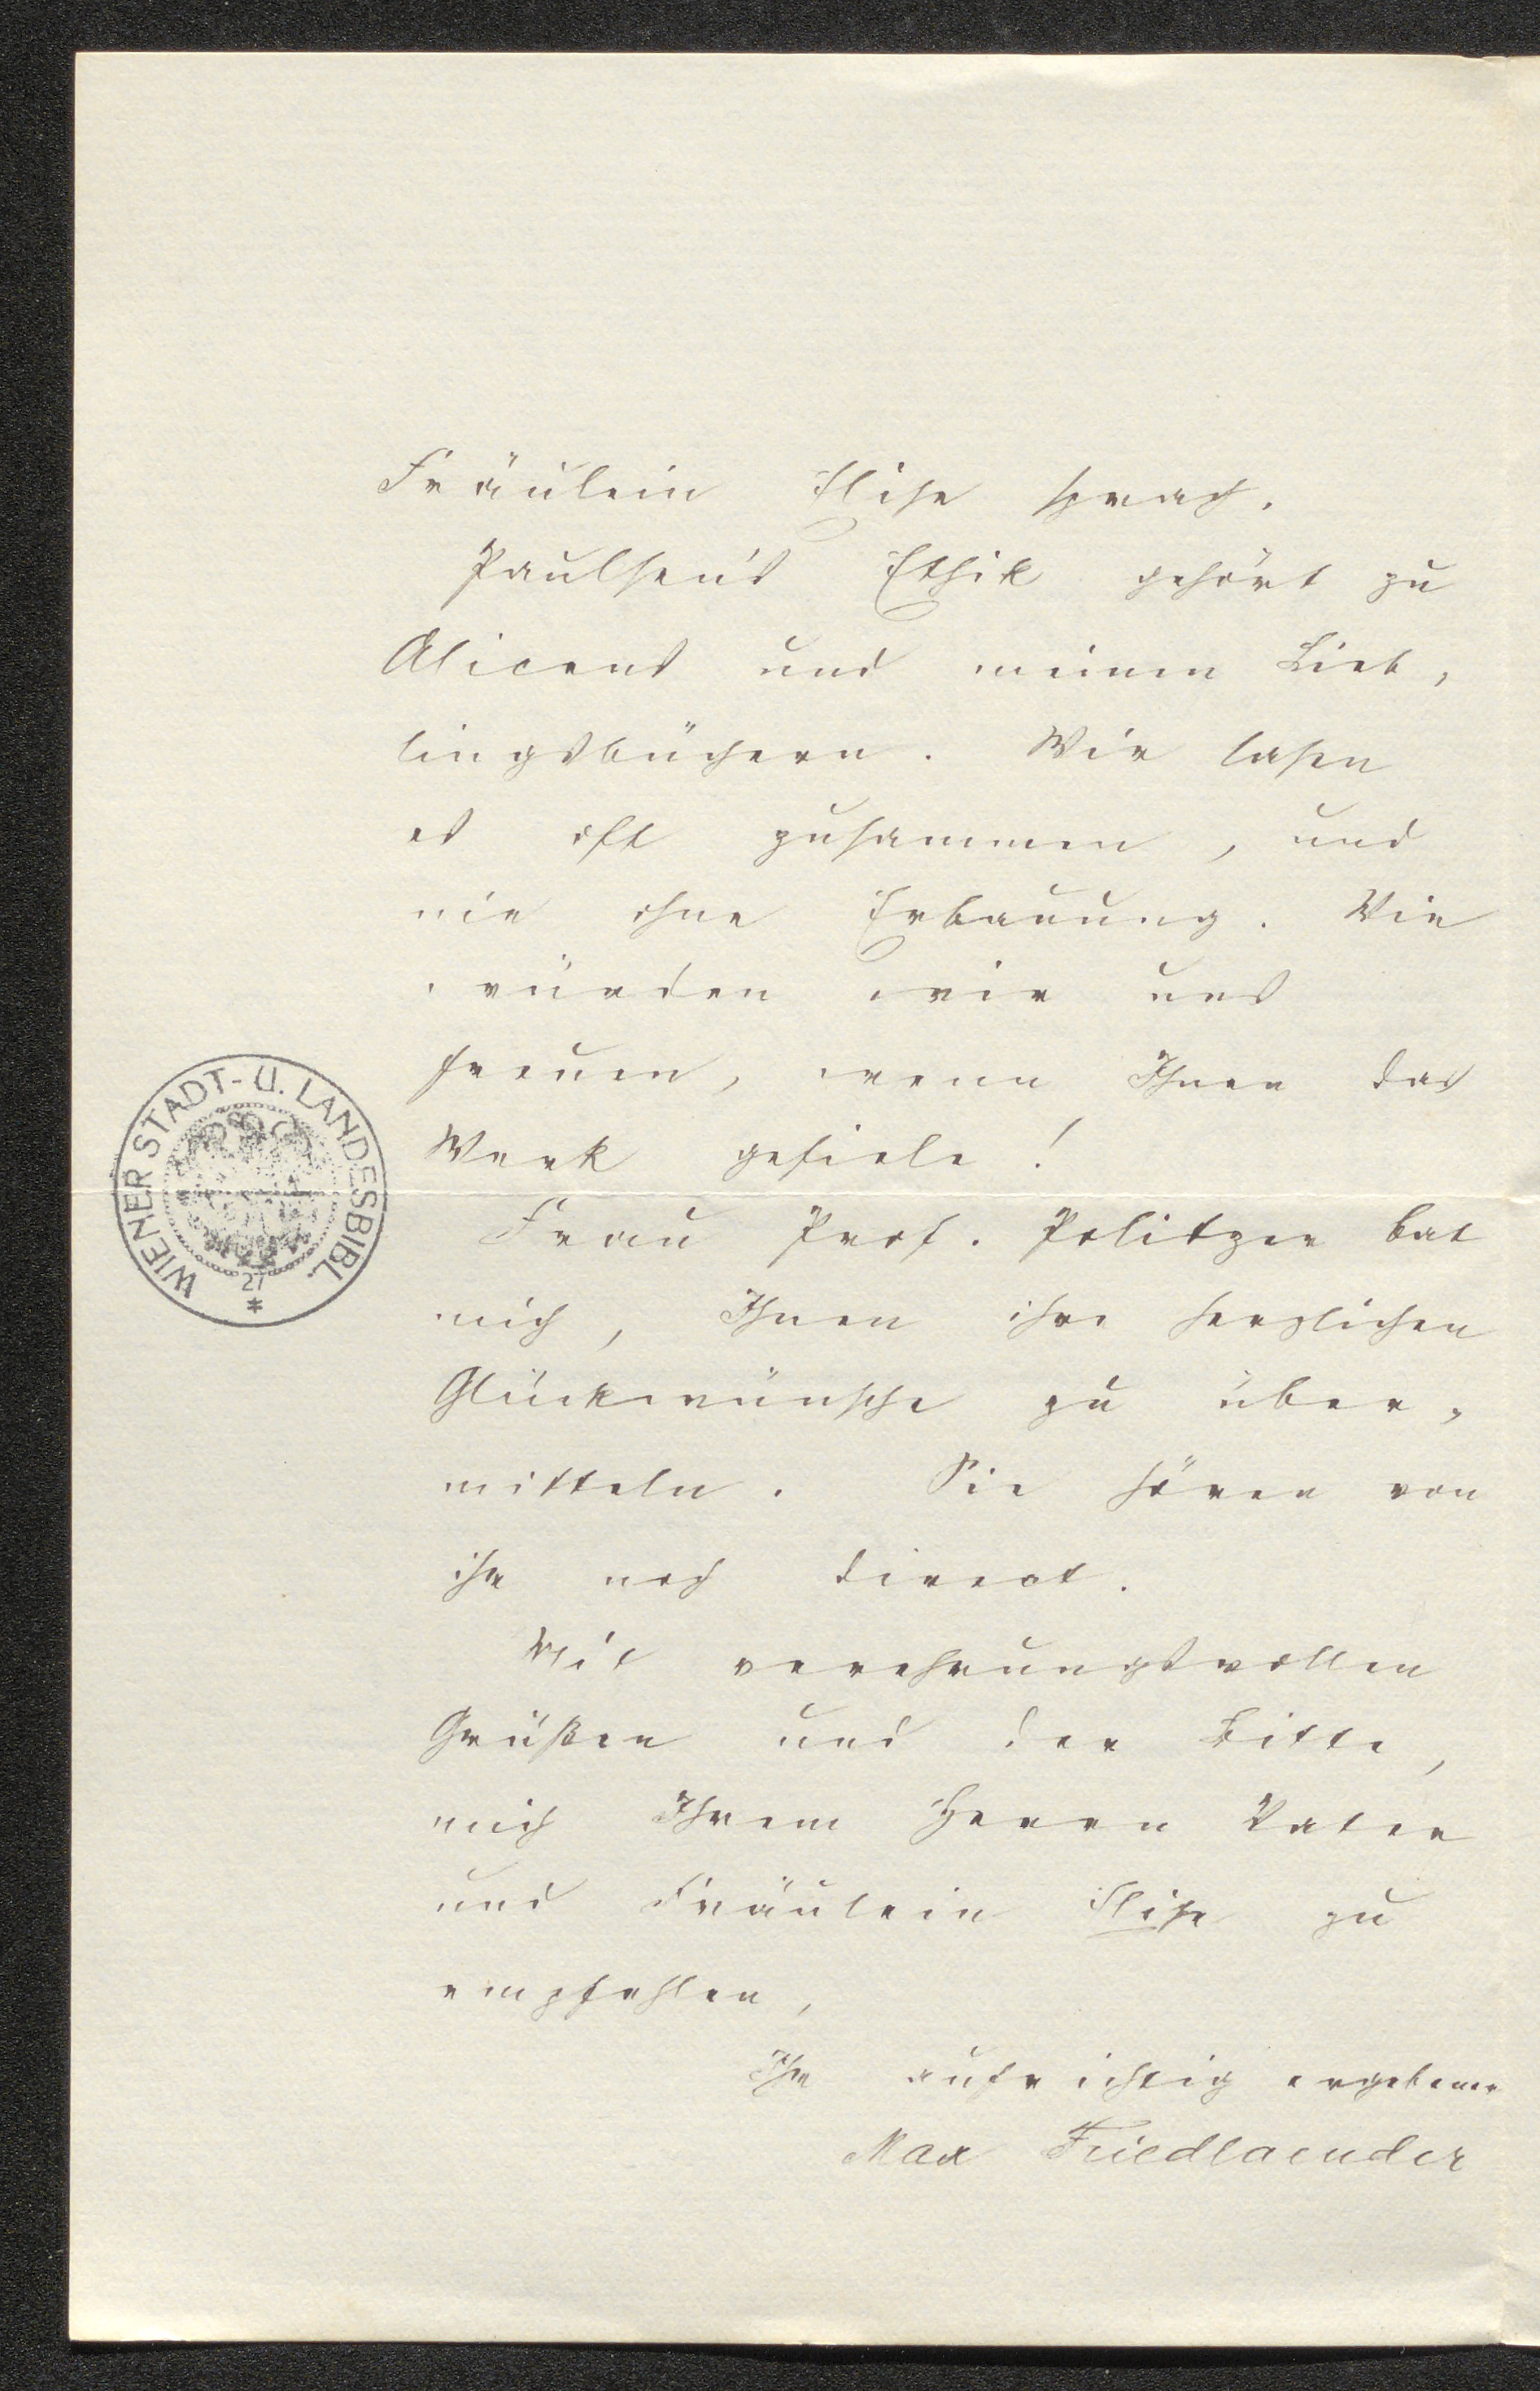 Fräulein Elise sprach.
Paulsen's Ethik gehört zu
Alicens und meinen Lieb-
lingsbüchern. Wir lasen
es oft zusammen, und
nie ohne Erbauung. Wie
würden wir uns
freuen, wenn Ihnen das
Werk gefiele!
Frau Prof. Politzer bat
mich, Ihnen ihre herzlichen
Glückwünsche zu über-
mitteln. Sie hören von
ihr noch direct.
Mit verehrungsvollen
Grüßen und der Bitte,
mich Ihrem Herrn Vater
und Fräulein Elise zu
empfehlen,
Ihr aufrichtig ergebener
Max Friedlaender
WIENER STADT- U. LANDESBIBL.
27
*